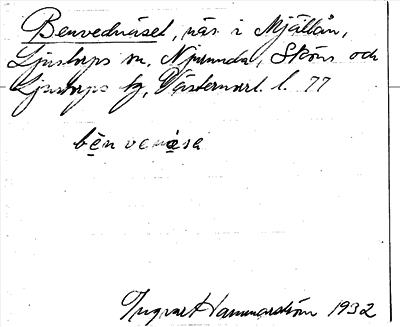 Benvednäset, näs i Mjällån,
Ljustorps sn, Njurunda, Sköns och
Ljustorps tg, Västernorrl. l. 77
bèn venäsə
Ingvar Hammarström 1932